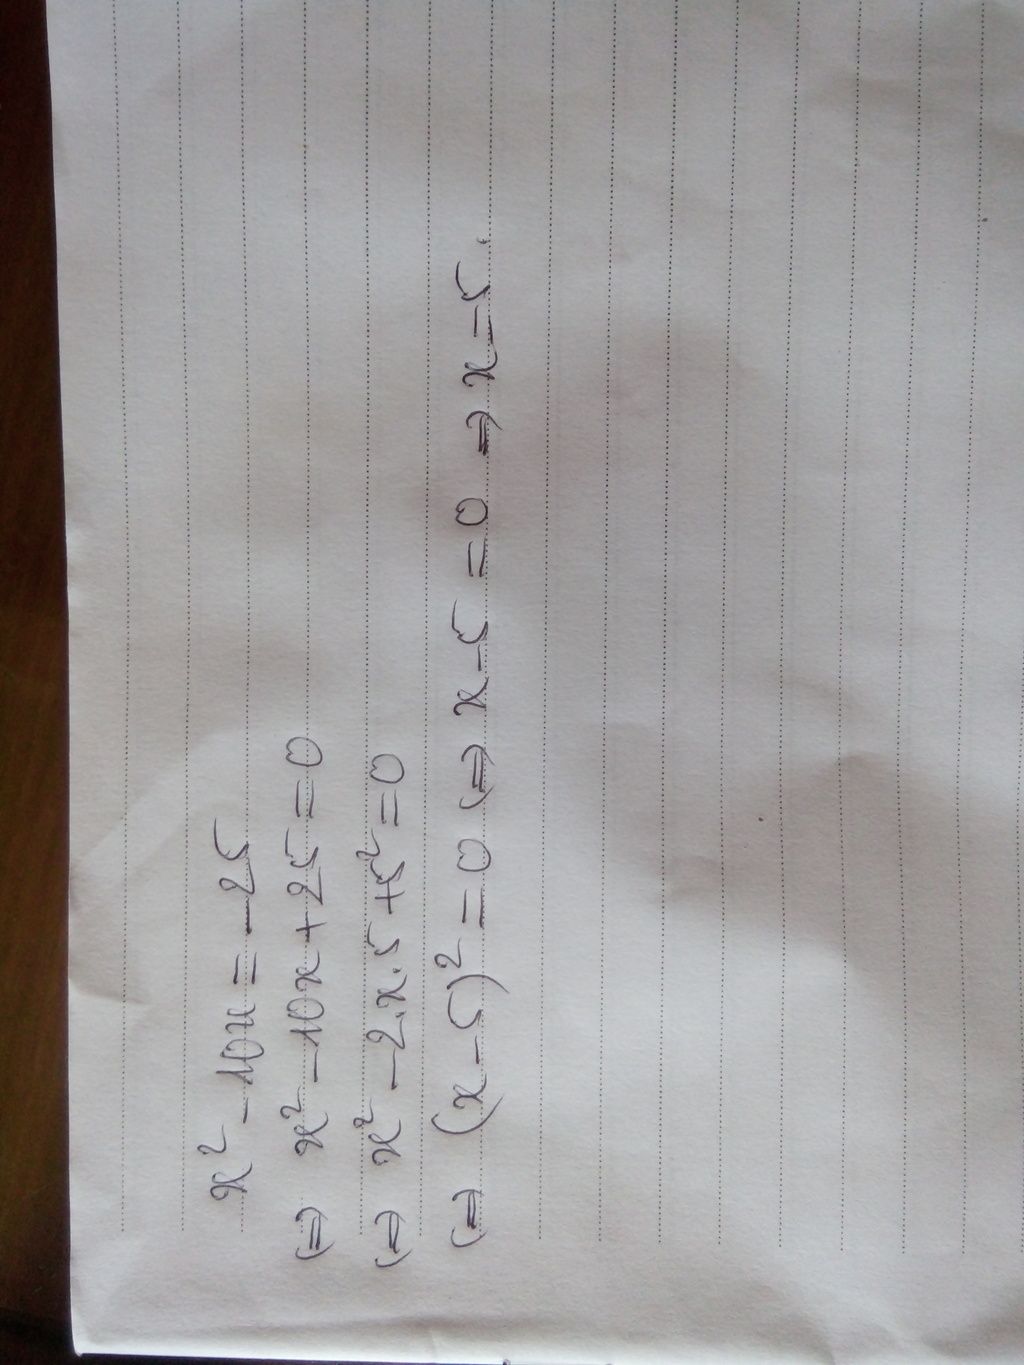 x² - 10x = -25
⇔ x² - 10x + 25 = 0
⇔ x² - 2.x.5 + 5² = 0
⇔ (x - 5)² = 0 ⇔ x - 5 = 0 ⇒ x = 5.